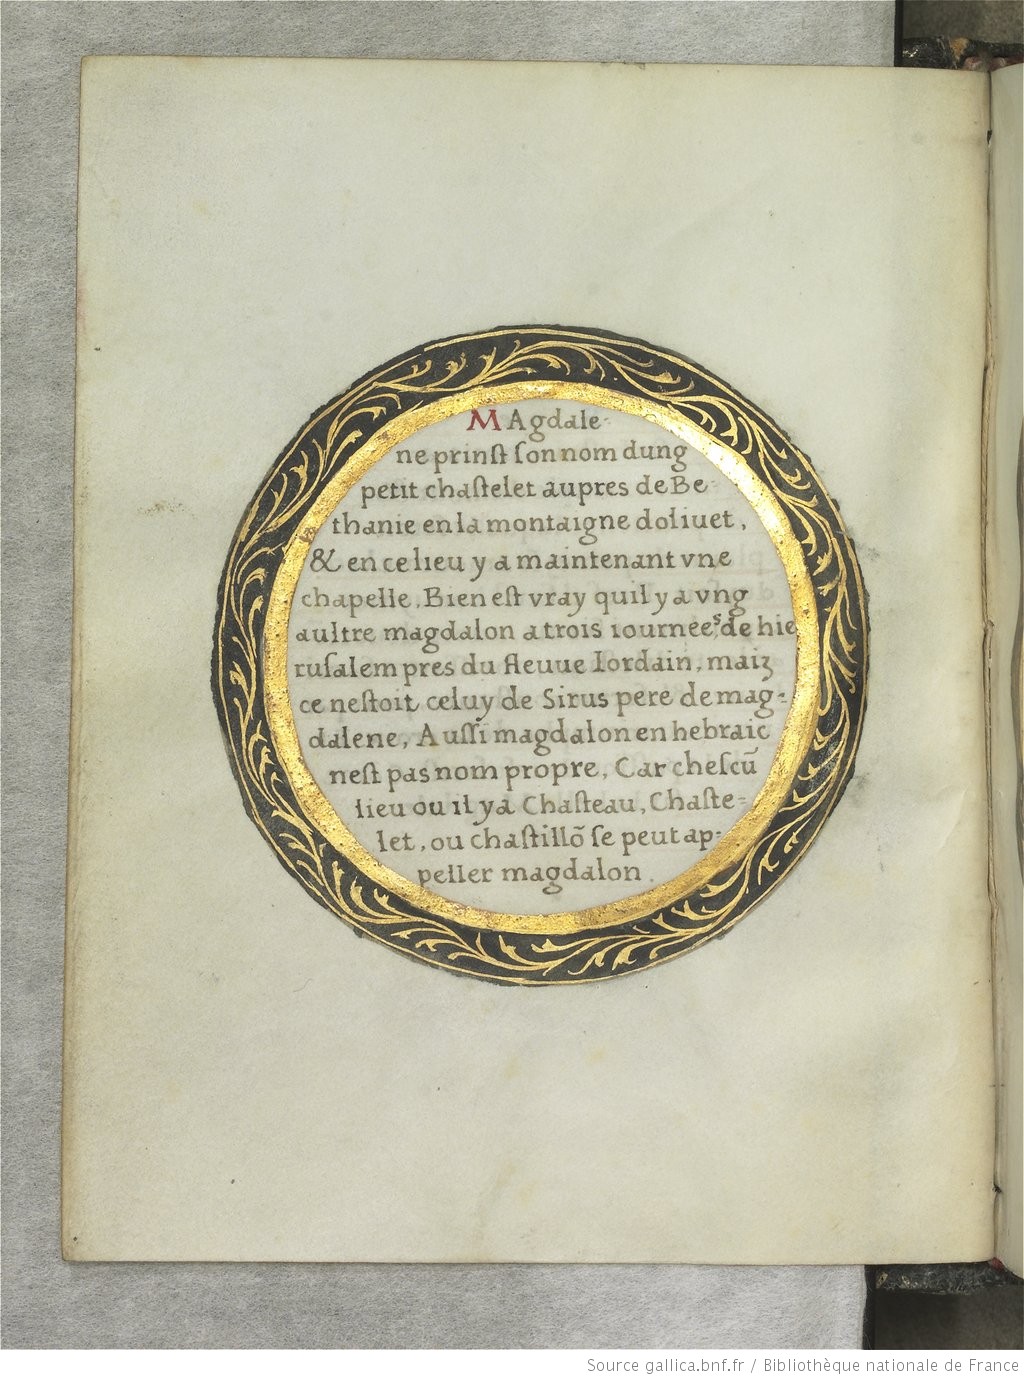 MAgdale-
ne prinst son nom dung
petit chastelet aupres de Be-
thanie en la montaigne doliuet,
& en ce lieu y a maintenant vne
chapelle. Bien est vray quil y a vng
aultre magdalon a trois iournees de hie
rusalem pres du fleuue Iordain, maiz
ce nestoit celuy de Sirus pere de mag-
dalene, Aussi magdalon en hebraic
nest pas nom propre, Car chescū
lieu ou il ya Chasteau, Chaste-
let, ou chastillō se peut ap-
peller magdalon.
Source gallica.bnf.fr / Bibliothèque nationale de France